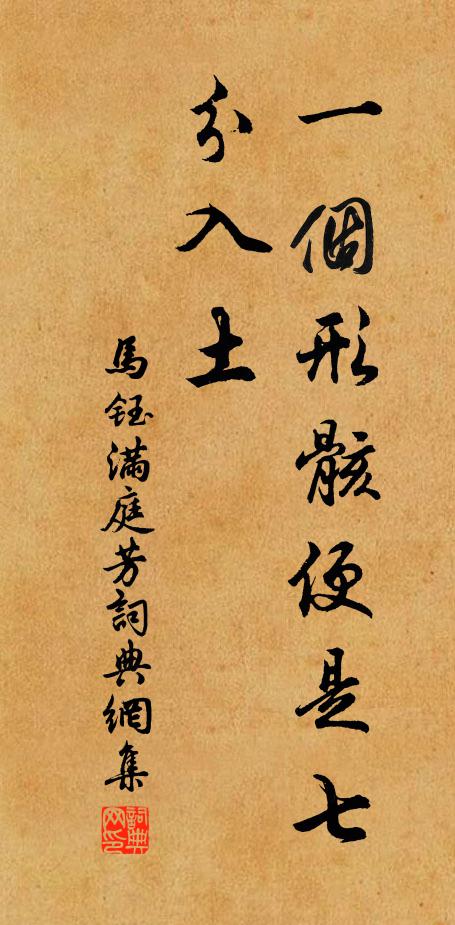 一個形骸便是七
分入土
馬鈺滿庭芳詞典網集
詞典
网印